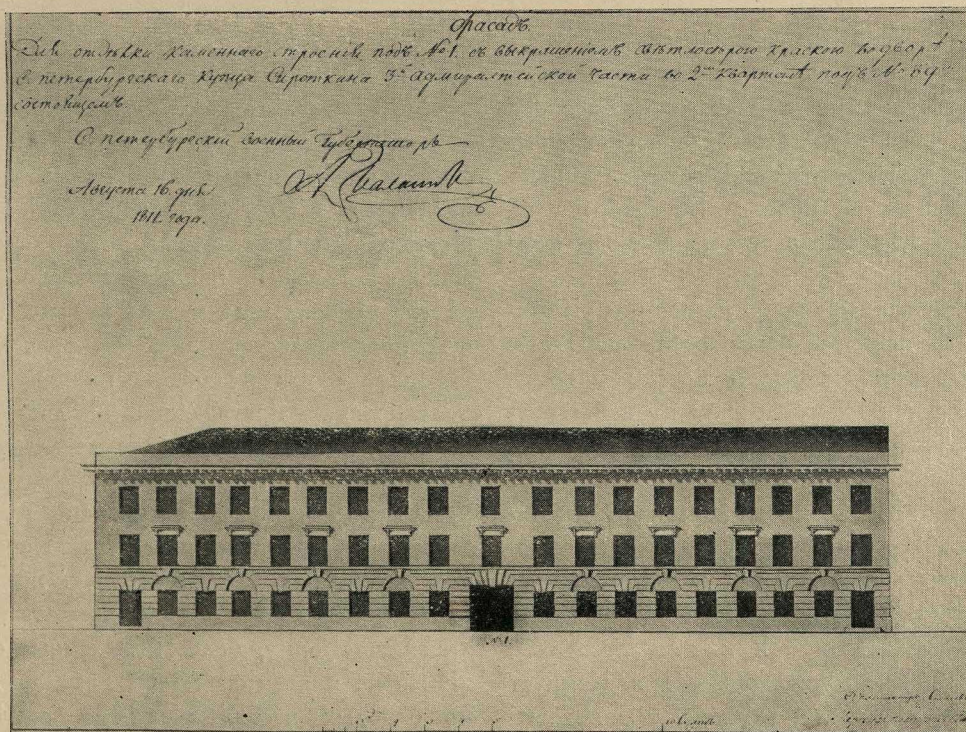 Фасадъ.
Для отдѣлки каменнаго строенія подъ № 1. съ выкрашеніемъ свѣтлосѣрою краскою во дворѣ
С петербургскаго купца Сироткина 3й Адмиралтейской части во 2мъ Кварталѣ подъ № 69
состоящемъ.
С петербургскій военный Губернаторъ
Августа 16 дня
1811. года.
№ 1.